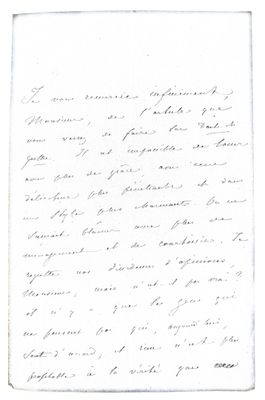 Je vous remercie infiniment,
Monsieur, de l'article que
vous venez de faire sur
Il est impossible de louer
avec plus de grâce, avec une
délicatesse plus pénétrante et dans
un style plus charmant. On ne
saurait blâmer avec plus de
ménagement et de courtoisie. Je
regrette nos dissidences d'opinions,
Monsieur, mais n'est-il pas vrai?
il n'y a que les gens qui
ne pensent pas qui, aujourd'hui,
sont d'accord, et rien n'est plus
profitable à la vérité que